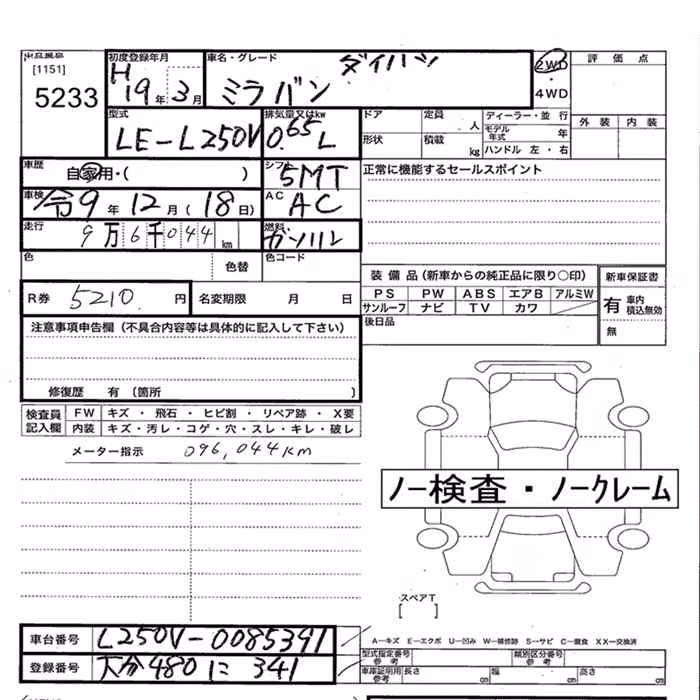 [1151]
5233
初度登録年月 H19年3月
車名・グレード ダイハツ
ミラバン
2WD
4WD
評価点
外装 内装
型式 LE-L250V
排気量又はkw 0.65L
ドア 定員 人
形状 積載 kg
ディーラー・並行
モデル年式 年
ハンドル 左・右
車歴 自家用・( )
シフト 5MT
正常に機能するセールスポイント
車検 令9年12月(18日)
AC AC
走行 9万6千044km
燃料 ガソリン
色 色替 色コード
装備品(新車からの純正品に限り○印) 新車保証書
PS PW ABS エアB アルミW
サンルーフ ナビ TV カワ
有 車内積込無効
無
後日品
R券 5210円 名変期限 月 日
注意事項申告欄(不具合内容等は具体的に記入して下さい)
修復歴 有(箇所 )
検査員記入欄
FW キズ・飛石・ヒビ割・リペア跡・X要
内装 キズ・汚レ・コゲ・穴・スレ・キレ・破レ
メーター指示 096,044km
ノー検査・ノークレーム
スペアT
[ ]
車台番号 L250V-0085391
登録番号 大分480に341
A―キズ E―エクボ U―凹み W―補修跡 S―サビ C―腐食 XX―交換済
型式指定番号 参考 類別区分番号 参考
車庫証明用 参考 長さ cm 幅 cm 高さ cm